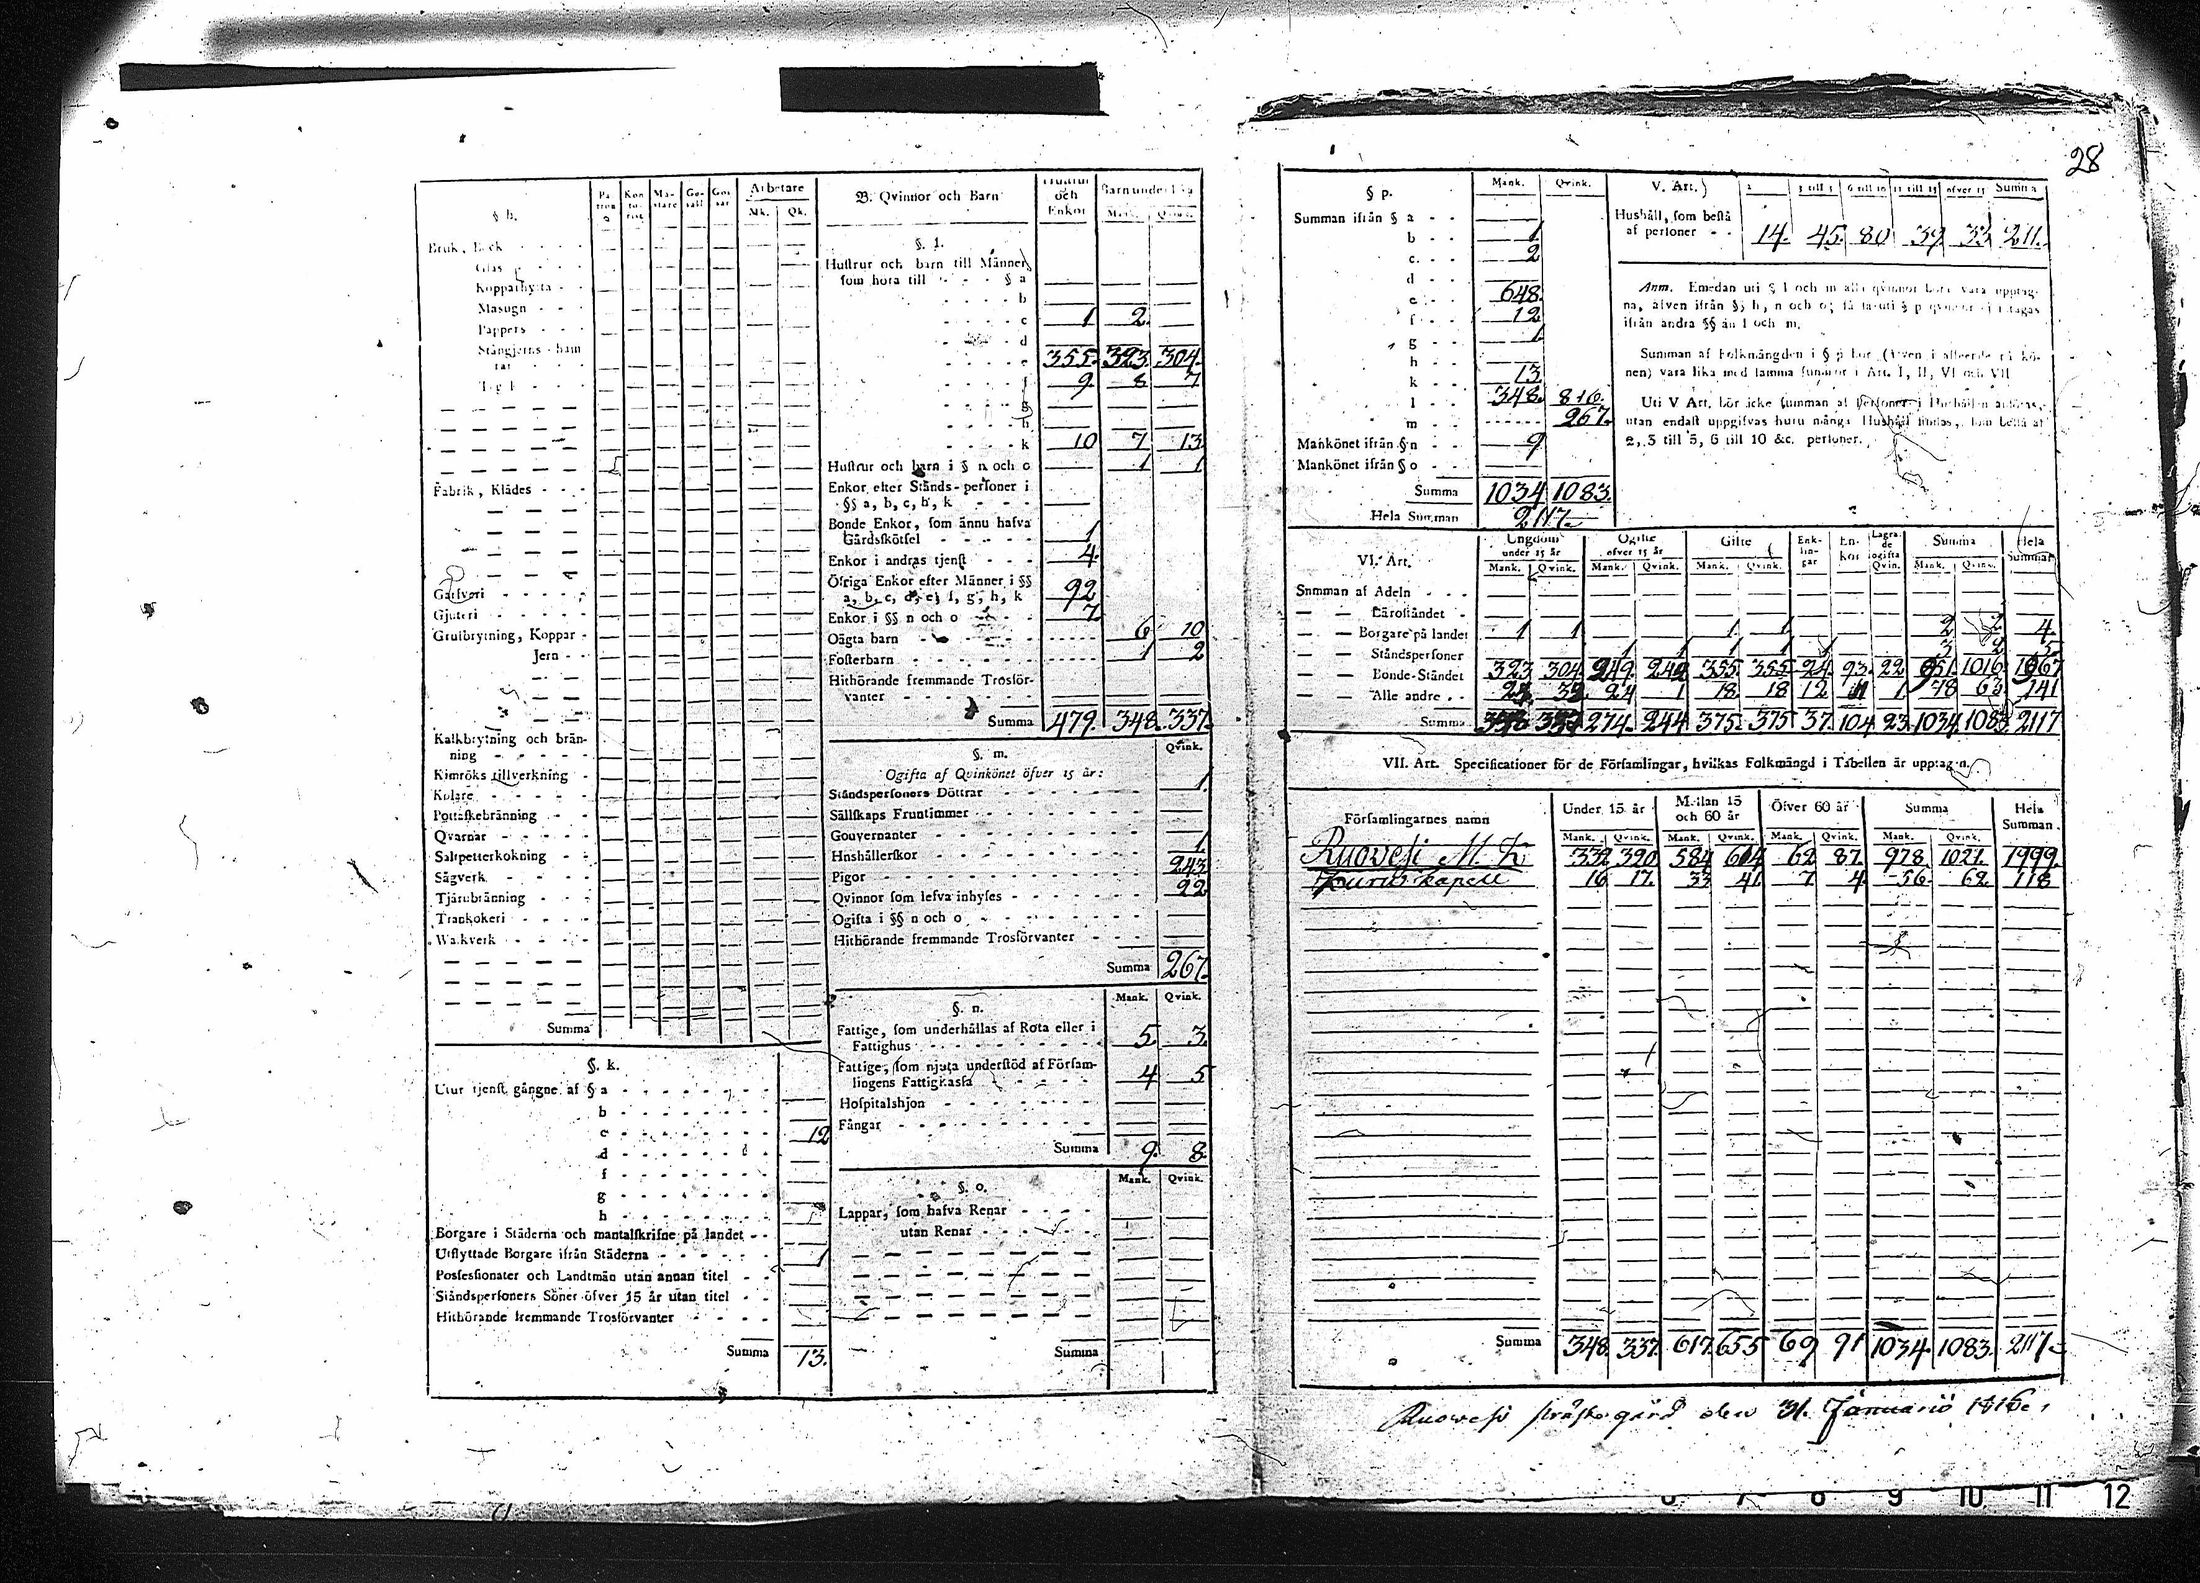 28
§ h.
Pa-
tron
Kon-
to-
rist
Mä-
stare
Ge-
säll
Gos-
sar
Arbetare
Mk. Qk.
Bruk, Beck - - - -
Glas - - - -
Kopparhytta - -
Masugn - - -
Pappers - - -
Stångjerns-ham
rar - - -
Fabrik, Klädes - - -
Garfveri - - - - -
Gjuteri - - - - -
Grufbrytning, Koppar -
Jern - -
Kalkbrytning och brän-
ning - - - - -
Kimröks tillverkning -
Kolare - - - - -
Pottaskebränning - -
Qvarnar - - - - -
Saltpetterkokning - -
Sågverk - - - - -
Tjärubränning - - -
Trankokeri - - - -
Walkverk - - - - -
Summa
§. k.
Utur tjenst gångne af § a - - - - - - -
b - - - - - - -
c - - - - - - - 12
d - - - - - - -
f - - - - - - -
g - - - - - - -
h - - - - - - -
Borgare i Städerna och mantalskrifne på landet - -
Utflyttade Borgare ifrån Städerna - - - - - - 1
Possessionater och Landtmän utan annan titel - -
Ståndspersoners Söner öfver 15 år utan titel - -
Hithörande fremmande Trosförvanter - - - -
Summa 13.
B. Qvinnor och Barn
Hustrur
och
Enkor
Barn under 15 år
Mank. Qvink.
§. l.
Hustrur och barn till Männer,
som höra till - - - § a
- - - - b
- - - - c 1 2
- - - - d
- - - - e 355. 323. 304.
- - - - f 9. 8 7
- - - - g
- - - - h
- - - - k 10 7 13
Hustrur och barn i § n och o 1 1
Enkor efter Stånds-personer i
§§ a, b, c, h, k - - -
Bonde Enkor, som ännu hafva
Gårdsskötsel - - - - - 1
Enkor i andras tjenst - - - 4.
Öfriga Enkor efter Männer i §§
a, b, c, d, e, f, g, h, k 92
Enkor i §§ n och o - - - - 7.
Oägta barn - - - - - 6 10
Fosterbarn - - - - - 1 2
Hithörande fremmande Trosför-
vanter - - - - - -
Summa 479. 348. 337.
§. m.
Qvink.
Ogifta af Qvinkönet öfver 15 år:
Ståndspersoners Döttrar - - - - - - - 1.
Sällskaps Fruntimmer - - - - - - -
Gouvernanter - - - - - - - - -
Hushållerskor - - - - - - - - - 1.
Pigor - - - - - - - - - - 243
Qvinnor som lefva inhyses - - - - - - 22
Ogifta i §§ n och o - - - - - - - -
Hithörande fremmande Trosförvanter - - -
Summa 267.
§. n.
Mank. Qvink.
Fattige, som underhållas af Rota eller i
Fattighus - - - - - - - - 5. 3.
Fattige, som njuta understöd af Försam-
lingens Fattigkassa - - - - - 4 5
Hospitalshjon - - - - - - -
Fångar - - - - - - - -
Summa 9. 8.
§. o.
Mank. Qvink.
Lappar, som hafva Renar - - - -
utan Renar - - - - -
Summa
§ p.
Mank. Qvink.
Summan ifrån § a - -
b - - 1.
c - - 2
d - -
e - - 648.
f - - 12
g - - 1.
h - -
k - - 13
l - - 348. 816.
m - - 267.
Mankönet ifrån § n - - 9
Mankönet ifrån § o - -
Summa 1034 1083.
Hela Summan 2117.
V. Art.
2 3 till 5 6 till 10 11 till 15 öfver 15 Summa
Hushåll, som bestå
af personer - - 14. 45. 80 39. 33. 211.
Anm. Emedan uti § l och m alla qvinnor böra vara upptag-
na, äfven ifrån §§ h, n och o; få ei uti § p qvinnor ej intagas
ifrån andra §§ än l och m.
Summan af Folkmängden i § p bör (äfven i afseende på kö-
nen) vara lika med samma summor i Art. I, II, VI och VII
Uti V Art. bör icke summan af Personer i Hushållen anföras,
utan endast uppgifvas huru många Hushåll finnas, som bestå af
2, 3 till 5, 6 till 10 &c. personer.
VI. Art.
Ungdom
under 15 år
Ogifte
öfver 15 år
Gifte
Enk-
lin-
gar
En-
kor
Lägra-
de
ogifta
Qvin.
Summa
Hela
Summan
Mank. Qvink. Mank. Qvink. Mank. Qvink. Mank. Qvink.
Summan af Adeln - - -
— — Läroståndet -
— — Borgare på landet 1 1 1 1 2 2 4.
— — Ståndspersoner 1 1 1 1 1 3 2 5.
— — Bonde-Ståndet 323 304 249. 242 355. 355 24. 93. 22 951 1016 1967
— — Alle andre - - 24 32 24 1 18. 18 12 11 1 78 63 141
Summa 348 337 274. 244 375. 375 37. 104. 23. 1034. 1083. 2117
VII. Art. Specificationer för de Församlingar, hvilkas Folkmängd i Tabellen är upptagen.
Församlingarnes namn
Under 15 år
Mellan 15
och 60 år
Öfver 60 år
Summa
Hela
Summan
Mank. Qvink. Mank. Qvink. Mank. Qvink. Mank. Qvink.
Ruovesi M. K. 332 320. 584 614 62 87. 978. 1021. 1999.
kapell 16 17. 33 41. 7. 4. 56. 62. 118
Summa 348. 337. 617. 655 69 91 1034. 1083. 2117.
Ruovesi prästegård den 31. Januarii 1816.
6 7 8 9 10 11 12